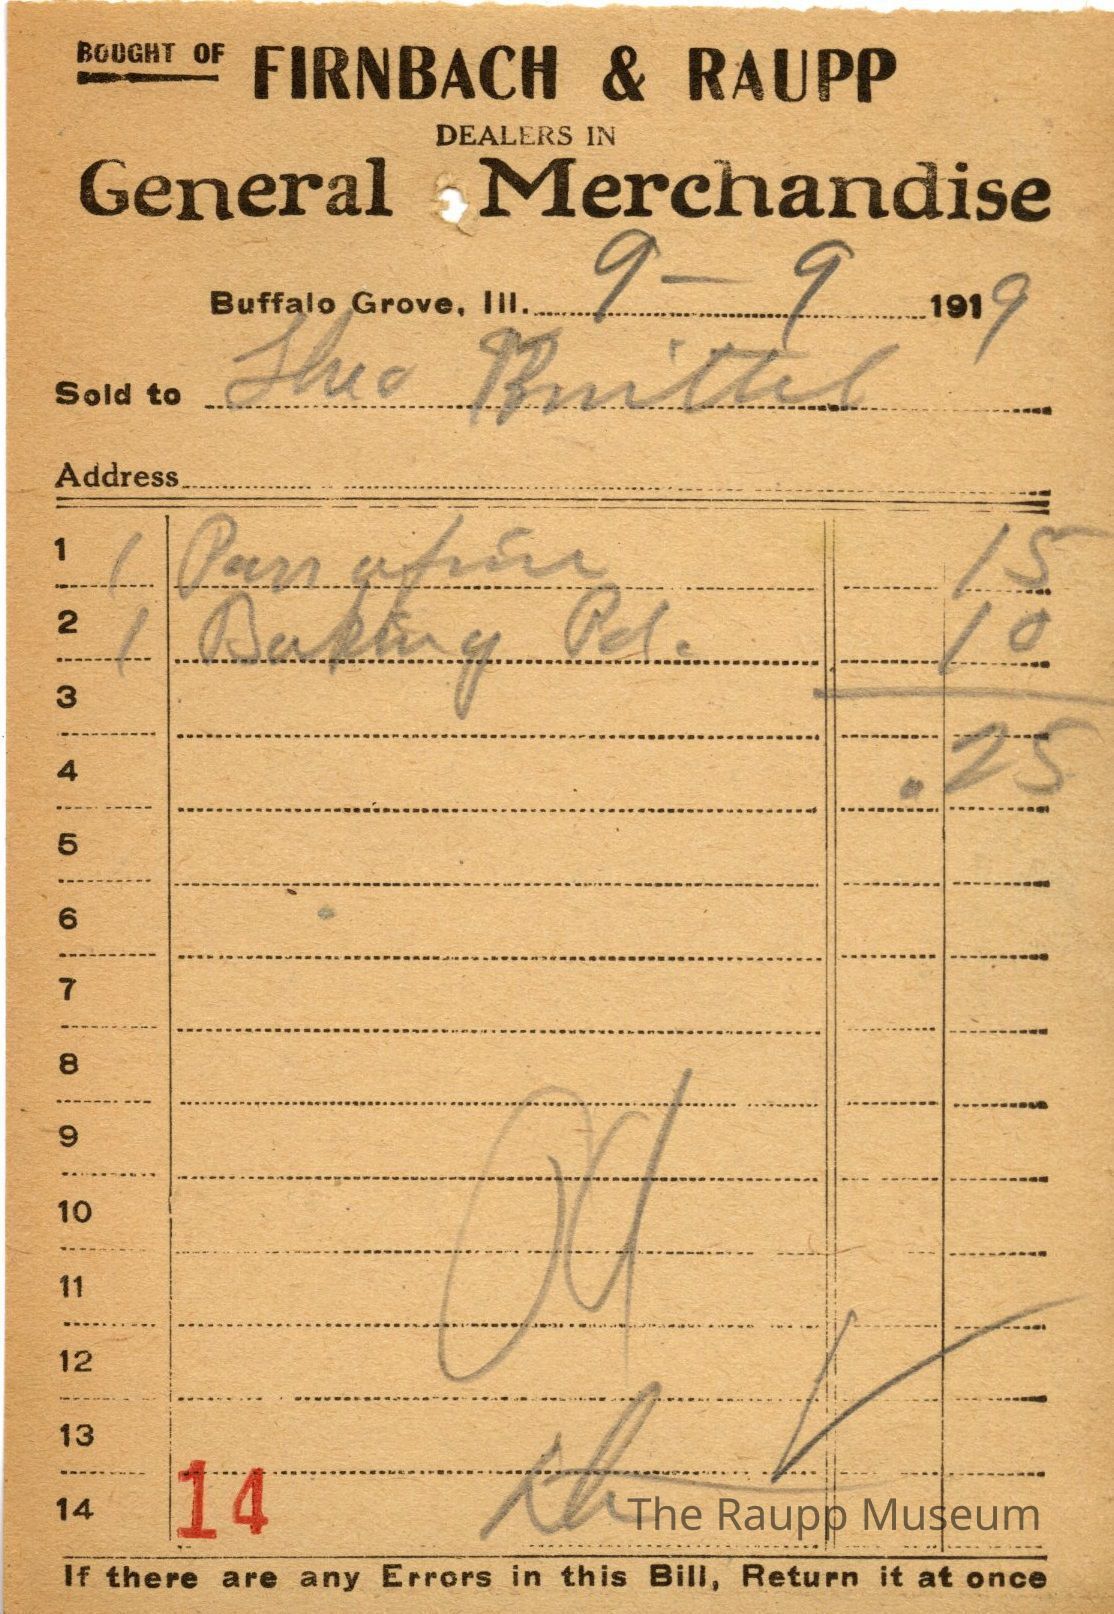 BOUGHT OF FIRNBACH & RAUPP
DEALERS IN
General Merchandise
Buffalo Grove, Ill. 9 - 9 1919
Sold to Theo
Address
1 1 Parrafine 15
2 1 Baking Pd. 10
3
4 .25
5
6
7
8
9
10
11
12
13
14 14
The Raupp Museum
If there are any Errors in this Bill, Return it at once